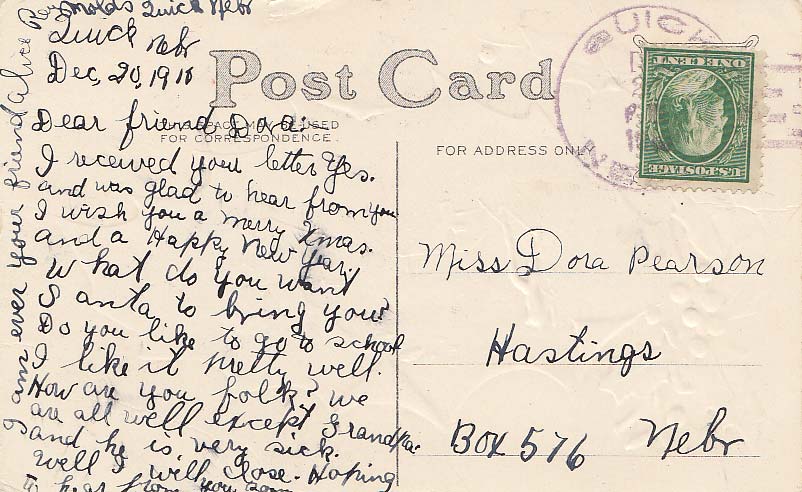 Quick Nebr
Quick Nebr
Dec, 20, 1910
Post Card
SPACE MAY BE USED
FOR CORRESPONDENCE
FOR ADDRESS ONLY
Dear friend Dora:—
I received your letter Yes.
and was glad to hear from you
I wish you a merry Xmas.
and a Happy New Year.
What do you want
Santa to bring you?
Do you like to go to school
I like it pretty well.
How are you folk? We
are all well except Grandpa
and he is very sick.
Well I will close. Hoping
to hear from you soon
I am ever your friend Alice Reynolds
Miss Dora Pearson
Hastings
Box 576 Nebr
QUICK
NEB
U.S. POSTAGE
ONE CENT